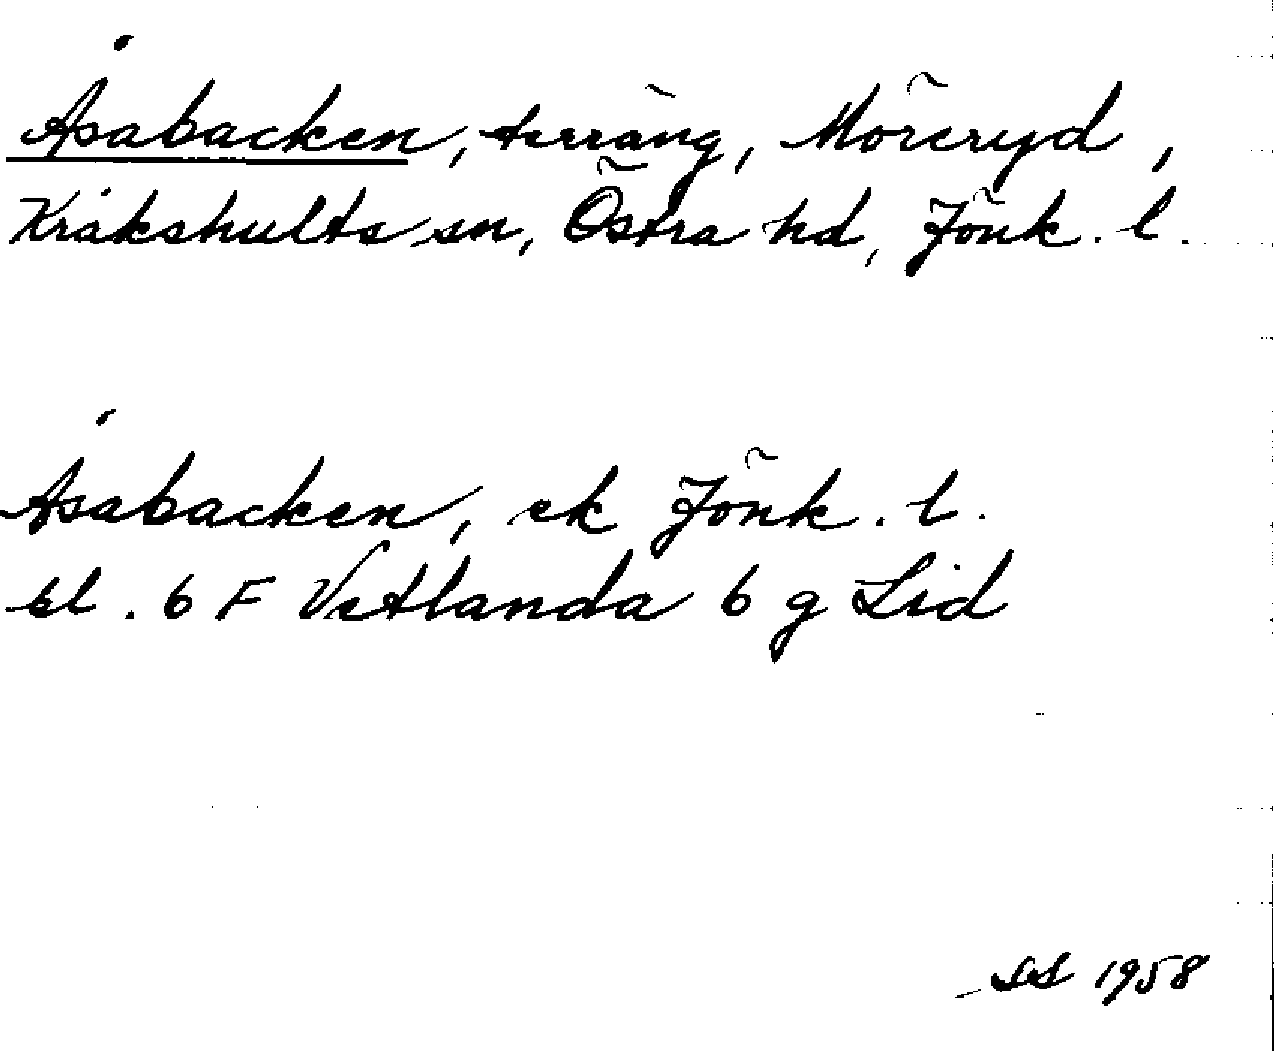 Åsabacken, terräng, Möreryd,
Kråkshults sn, Östra hd, Jönk. l.
Åsabacken, ek Jönk. l.
bl. 6 F Vetlanda 6 g Lid
SS 1958